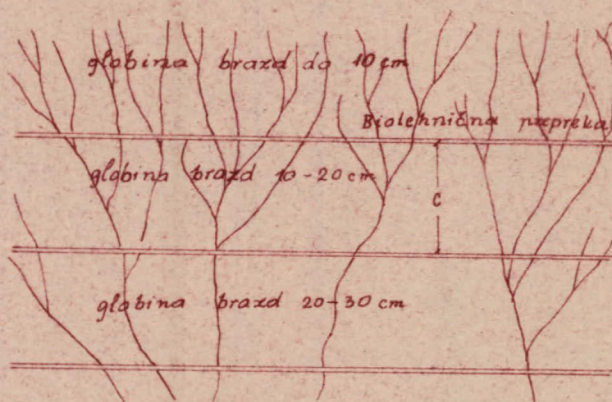 globina brazd do 10 cm
Biotehnična prepreka
globina brazd 10-20 cm
C
globina brazd 20-30 cm